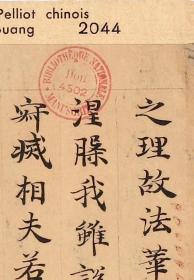 Pelliot chinois
ouang 2044
BIBLIOTHÈQUE NATIONALE
Don
4502
MANUSCRITS
之理故法華
涅槃我雖說
寂滅相夫若